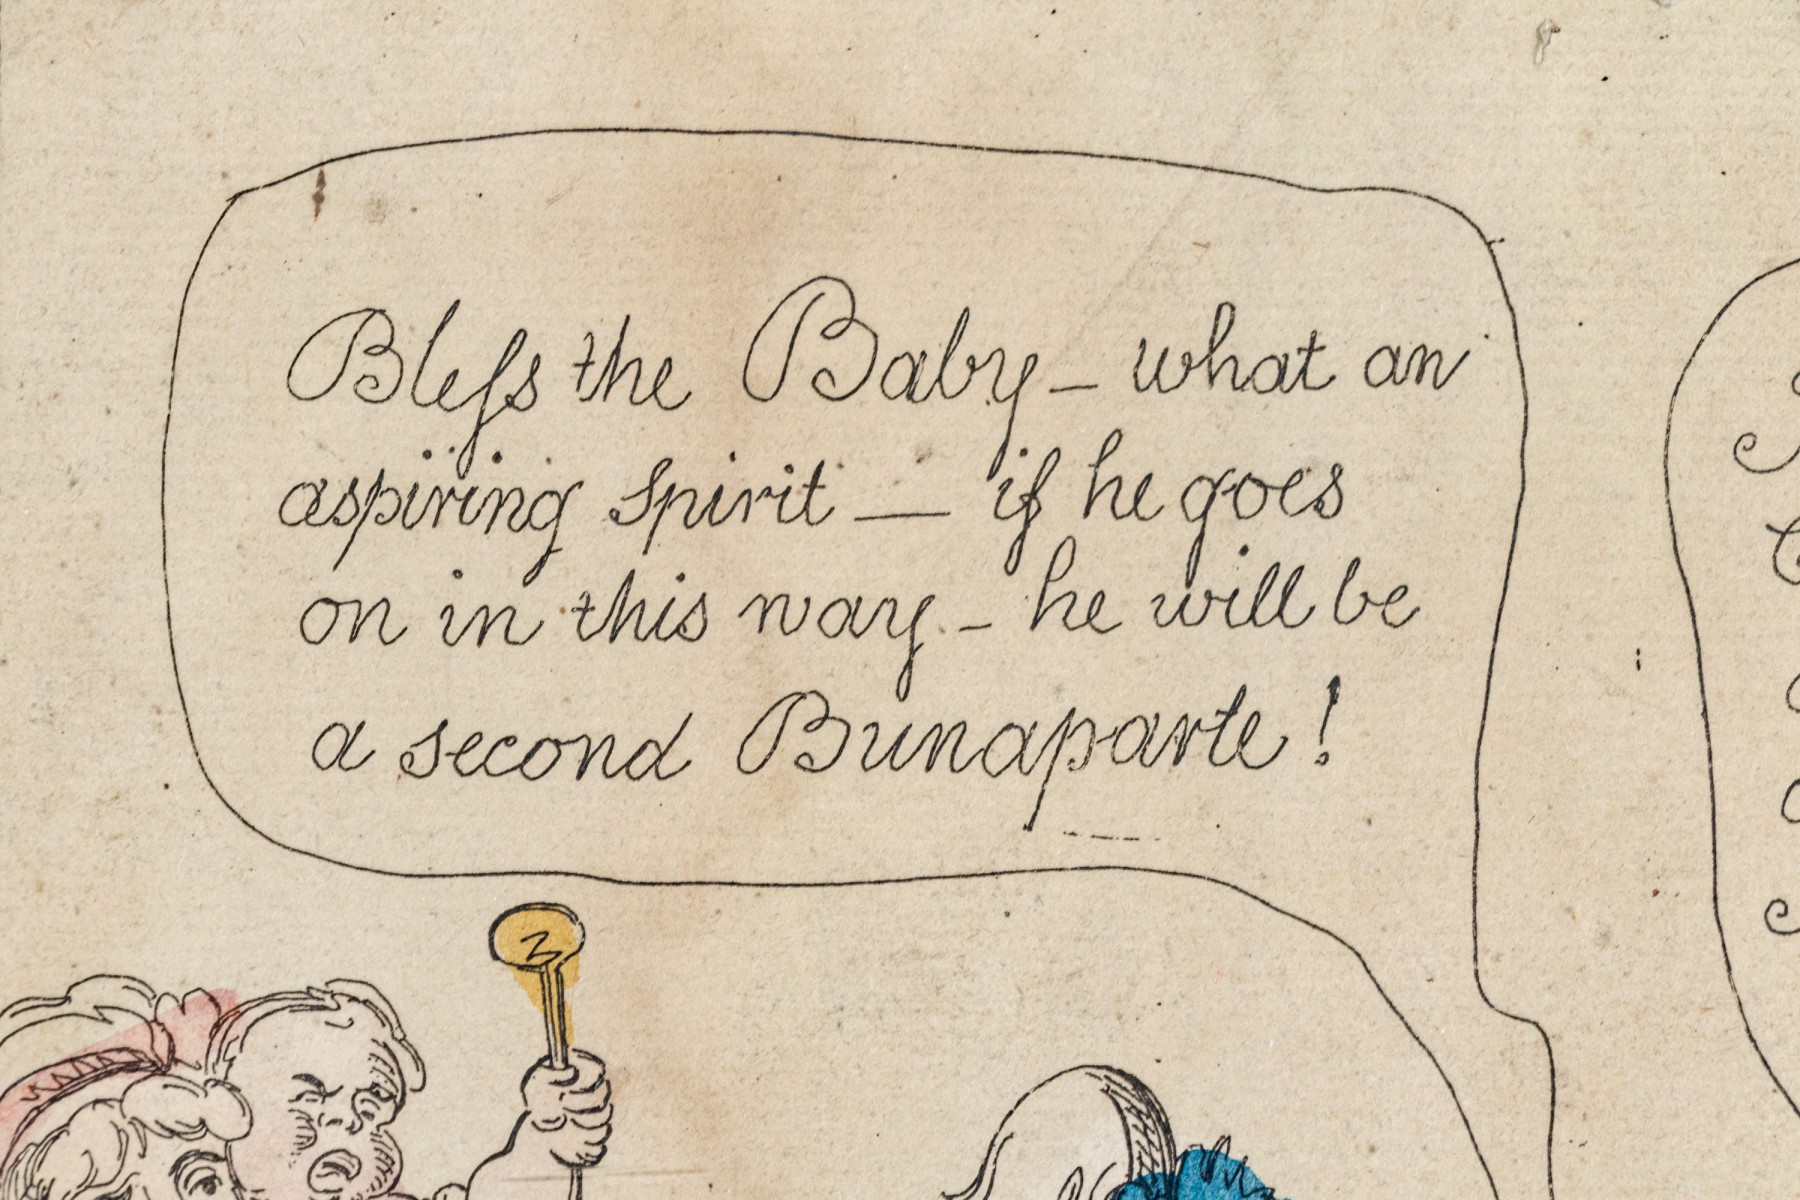 Bleſs the Baby – what an
aspiring Spirit — if he goes
on in this way – he will be
a second Bunaparte!